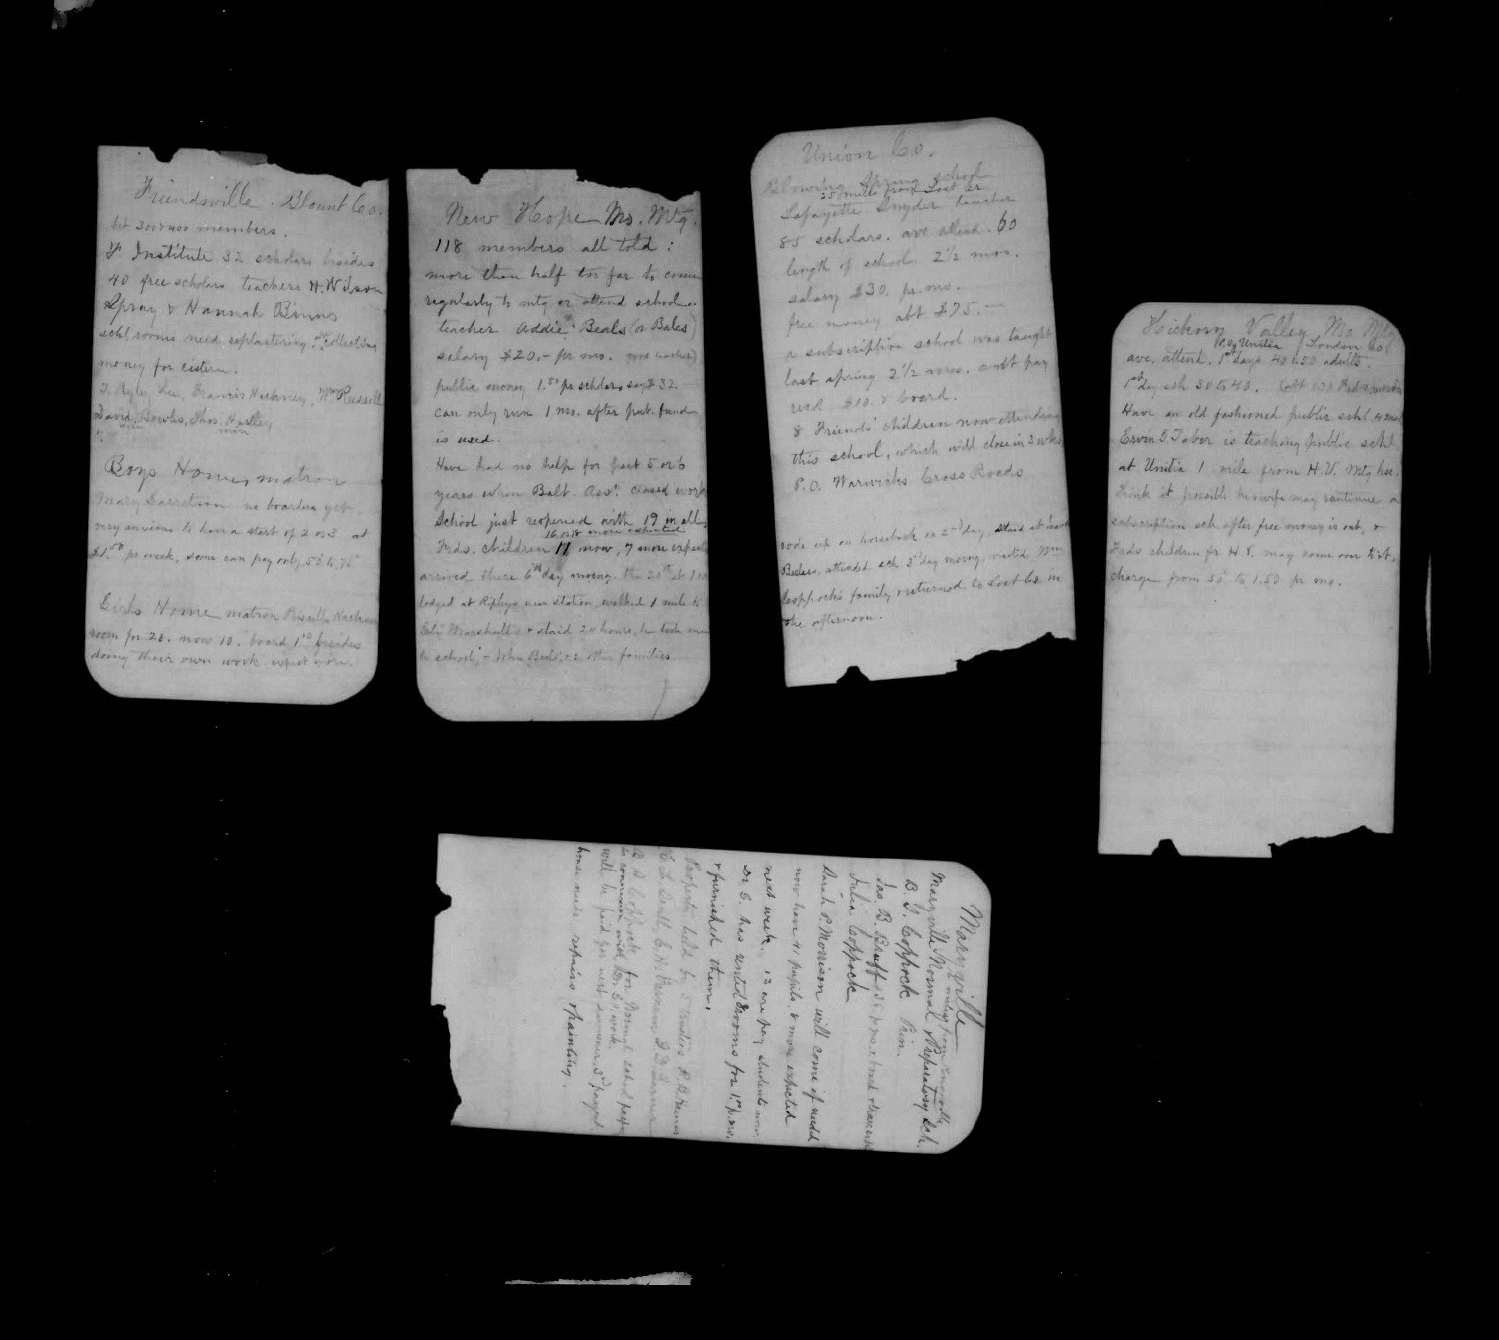 Friendsville. Blount Co.
bt 300 to 400 members.
Institute 32 scholars besides
40 free scholars, teachers H. Wilson
Spray & Hannah Binns
schl rooms need replastering. Collecting
money for cistern.
Lee, Francis Hackney, Wm Russell
David Bowles, Thos. Hartley
Boys Home, matron
Mary Garretson no boarders yet
very anxious to have a start of 2 or 3 at
pr week, some can pay only 50 to 75
Girls Home matron Priscilla Hackney
room for 20. now 10. board besides
doing their own work expect more
New Hope Mo. Mtg.
118 members all told:
more than half too far to come
regularly to mtg. or attend school.
teacher Addie Beals (or Bales)
salary $20.- pr mo. good teacher
public money 1.00 pr scholar, say $32.
can only run 1 mo. after pub. fund
is used.
Have had no help for past 5 or 6
years when Balt. Assn. closed work
School just reopened with 19 in all,
16 or 18 more expected
Frds. children 11 now, 7 more expect
arrived there 6th day morng. the 20th at
lodged at Ripleys near station, walked 1 mile to
Marshall's & staid 24 hours, he took me
to school, - John Beals, & 2 other families.
Union Co.
Blowing Spring school
25 miles from Lost Cr
Lafayette Snyder teacher
85 scholars. ave attend. 60
length of school 2½ mos.
salary $30. pr. mo.
free money abt $75.—
a subscription school was taught
last spring 2½ mos. amt pay
recd $10. & board.
8 Friends' children now attending
this school, which will close in 3 wks
P.O. Warwicks Cross Roads
rode up on horseback on 2nd day, staid at
Beelers, attended sch 3rd day morng, visited Wm
Coppock's family & returned to Lost Cr in
the afternoon.
Hickory Valley Mo Mtg
P.O. Unitia Loudon Co.
ave. attend. 1st days 40 to 50 adults.
1st day sch 30 to 40.
Have an old fashioned public schl
Ervin G. Taber is teaching public schl
at Unitia 1 mile from H.V. Mtg hse.
Think it possible he & wife may continue a
subscription sch after free money is out, &
Frds children fr H.V. may come over to it,
charge from 50c to 1.50 pr mo.
Maryville
Maryville Normal & Preparatory Sch.
B. S. Coppock Prin.
Jas. B. Bruff
Julia Coppock
Sarah P. Morrison will come if needed
now have 41 pupils, & more expected
next week, 13 are pay students now.
has rented rooms for pr. mo.
& furnished them.
Property held by 5 trustees
Coppock for Normal school
in connexion with work.
will be paid
house needs repairs & painting.